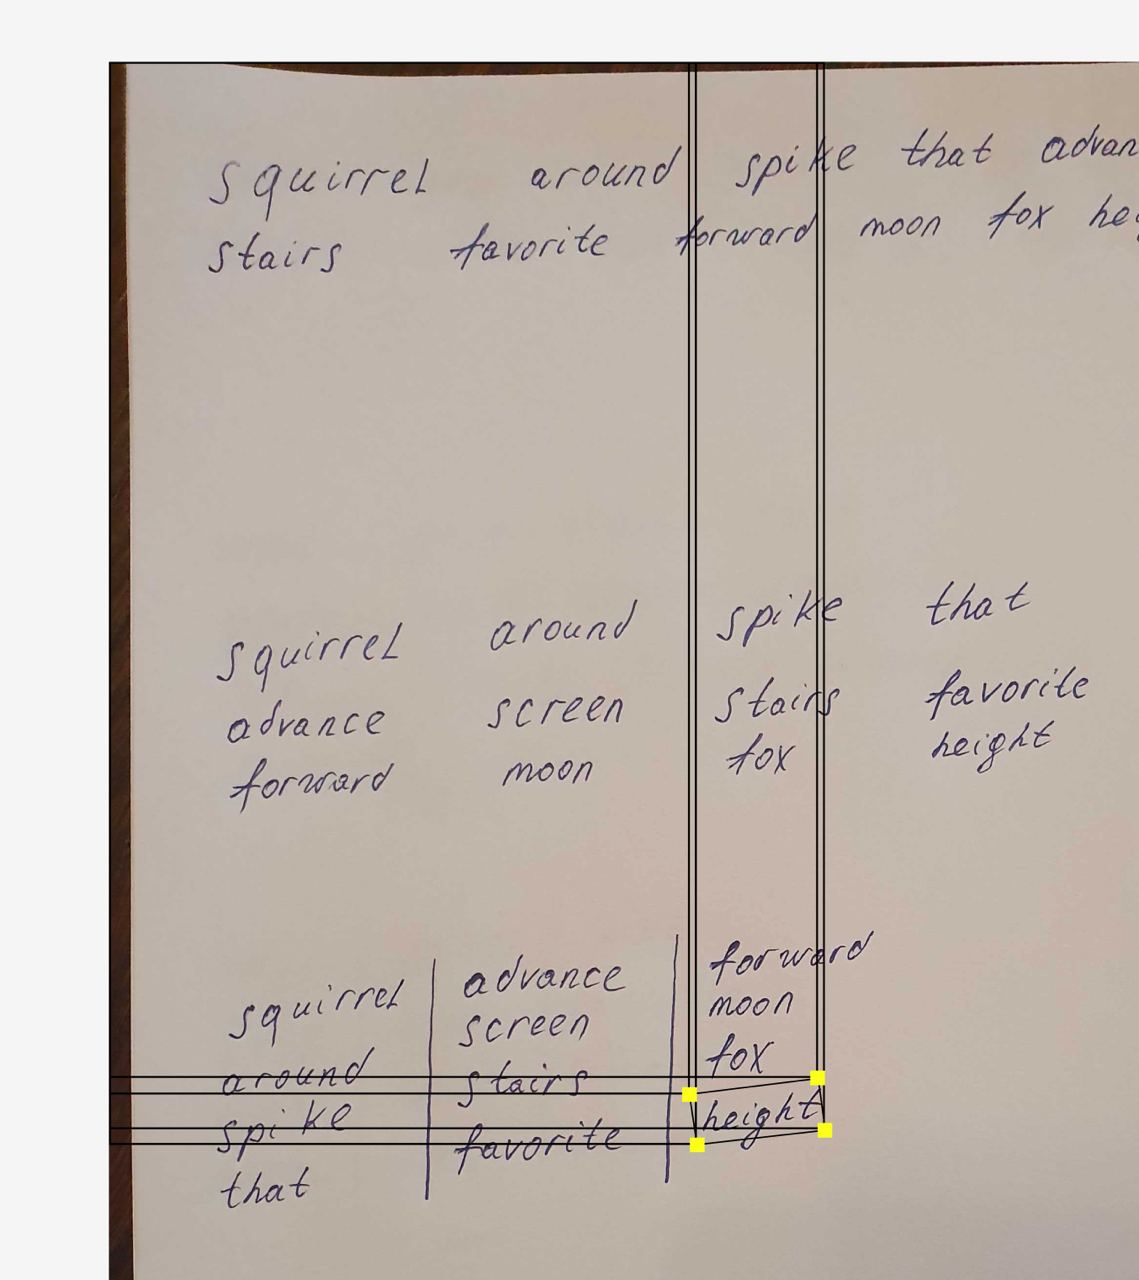 squirrel around spike that advan
stairs favorite forward moon fox
squirrel around spike that
advance screen stairs favorite
forward moon fox height
squirrel
around
spike
that
advance
screen
stairs
favorite
forward
moon
fox
height